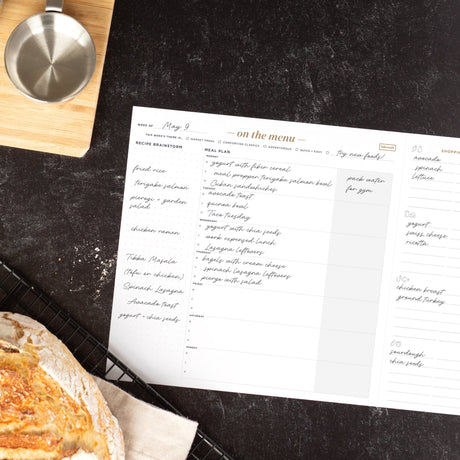 WEEK OF May 9
on the menu
THIS WEEK'S THEME IS... MARKET FRESH COMFORTING CLASSICS ADVENTUROUS QUICK + EASY
try new foods!
RECIPE BRAINSTORM
fried rice
teriyaki salmon
pierogi + garden
salad
chicken ramen
Tikka Masala
(tofu or chicken)
Spinach Lasagna
Avacado toast
yogurt + chia seeds
MEAL PLAN
MONDAY
yogurt with fiber cereal
meal prepped teriyaki salmon bowl
Cuban sandwiches
TUESDAY
avocado toast
quinoa bowl
Taco Tuesday
WEDNESDAY
yogurt with chia seeds
work expensed lunch
Lasagna leftovers
THURSDAY
bagels with cream cheese
spinach lasagna leftovers
pierogi with salad
FRIDAY
SATURDAY
SUNDAY
pack water
for gym
SHOPPING
avocado
spinach
lettuce
yogurt
swiss cheese
ricotta
chicken breast
ground turkey
sourdough
chia seeds